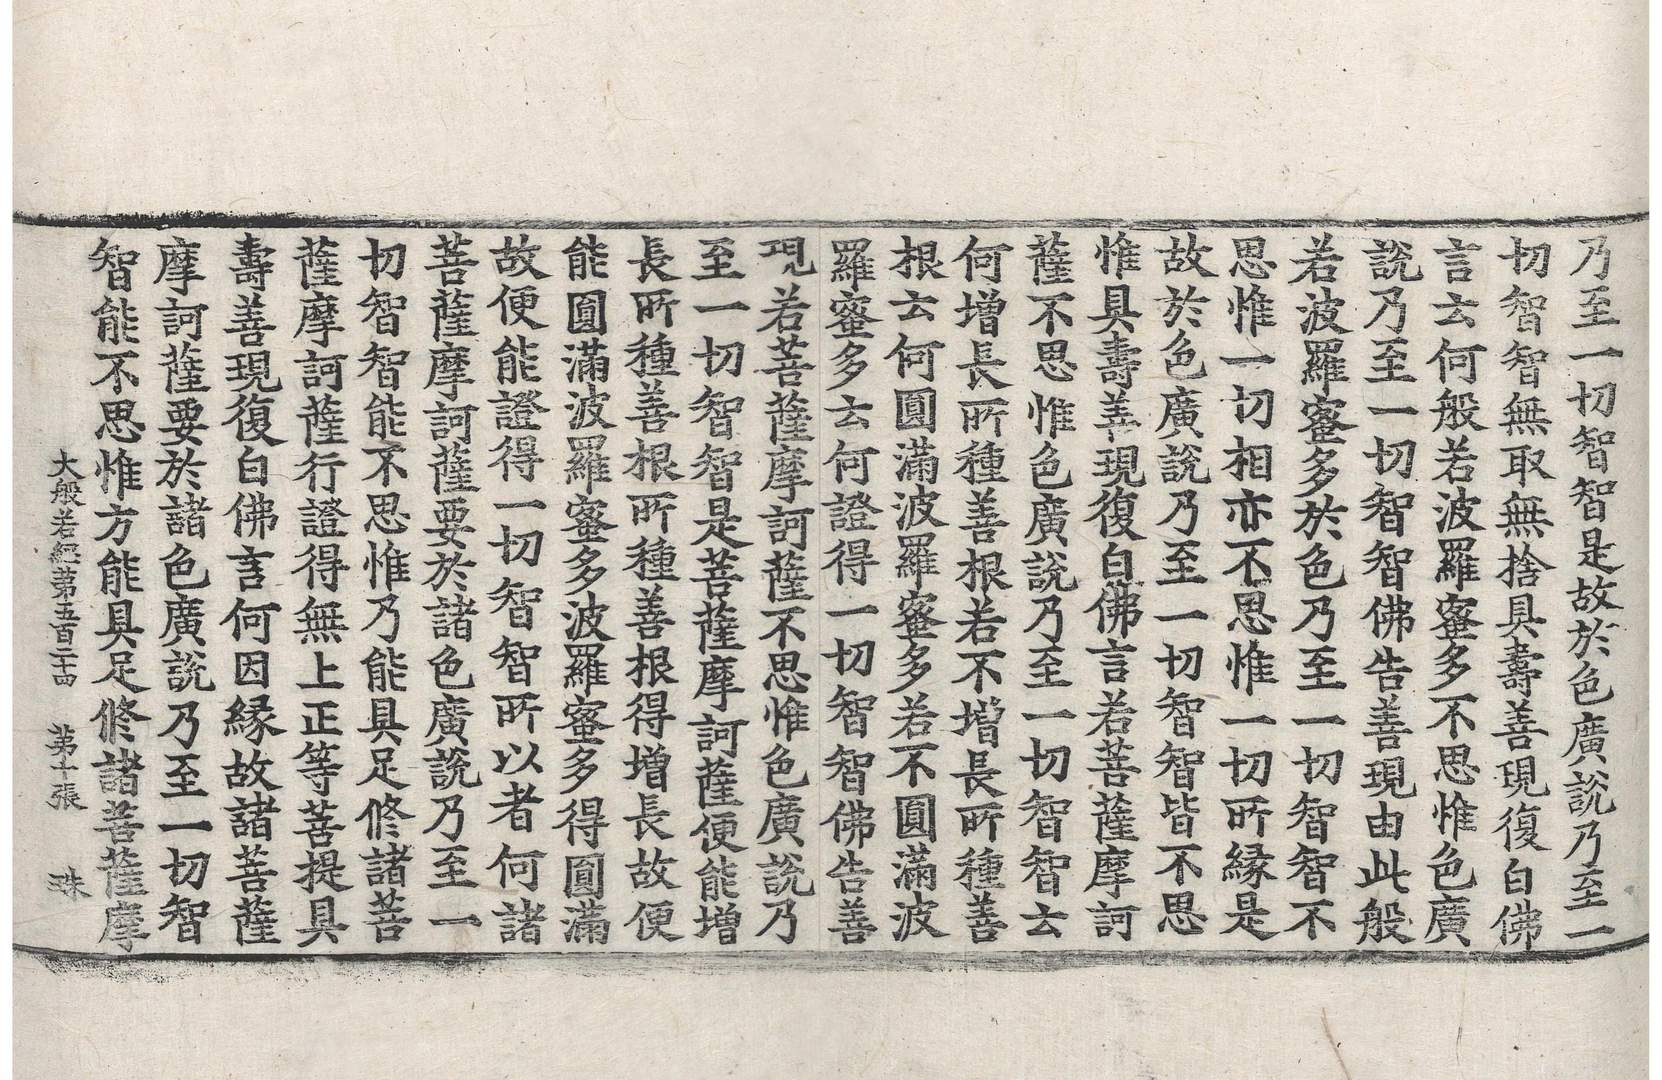 乃至一切智智是故於色廣說乃至一
切智智無取無捨具壽善現復白佛
言云何般若波羅蜜多不思惟色廣
說乃至一切智智佛告善現由此般
若波羅蜜多於色乃至一切智智不
思惟一切相亦不思惟一切所緣是
故於色廣說乃至一切智智皆不思
惟具壽善現復白佛言若菩薩摩訶
薩不思惟色廣說乃至一切智智云
何增長所種善根若不增長所種善
根云何圓滿波羅蜜多若不圓滿波
羅蜜多云何證得一切智智佛告善
現若菩薩摩訶薩不思惟色廣說乃
至一切智智是菩薩摩訶薩便能增
長所種善根所種善根得增長故便
能圓滿波羅蜜多波羅蜜多得圓滿
故便能證得一切智智所以者何諸
菩薩摩訶薩要於諸色廣說乃至一
切智智能不思惟乃能具足修諸菩
薩摩訶薩行證得無上正等菩提具
壽善現復白佛言何因緣故諸菩薩
摩訶薩要於諸色廣說乃至一切智
智能不思惟方能具足修諸菩薩摩
大般若經第五百二十四 第十張 珠